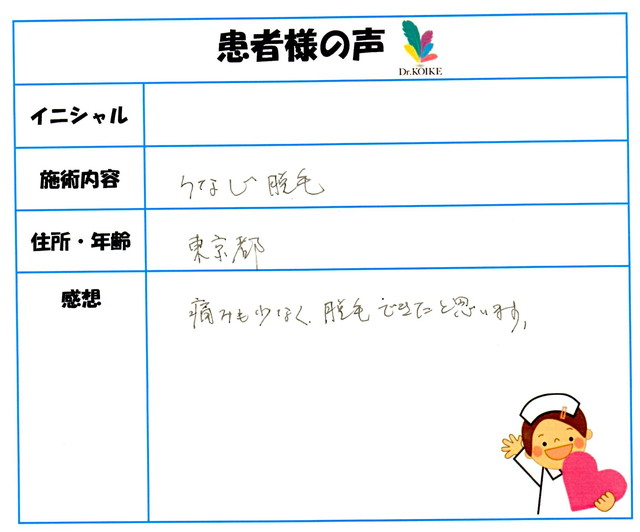 患者様の声
Dr.KOIKE
イニシャル
施術内容
うなじ 脱毛
住所・年齢
東京都
感想
痛みも少なく、脱毛できたと思います。